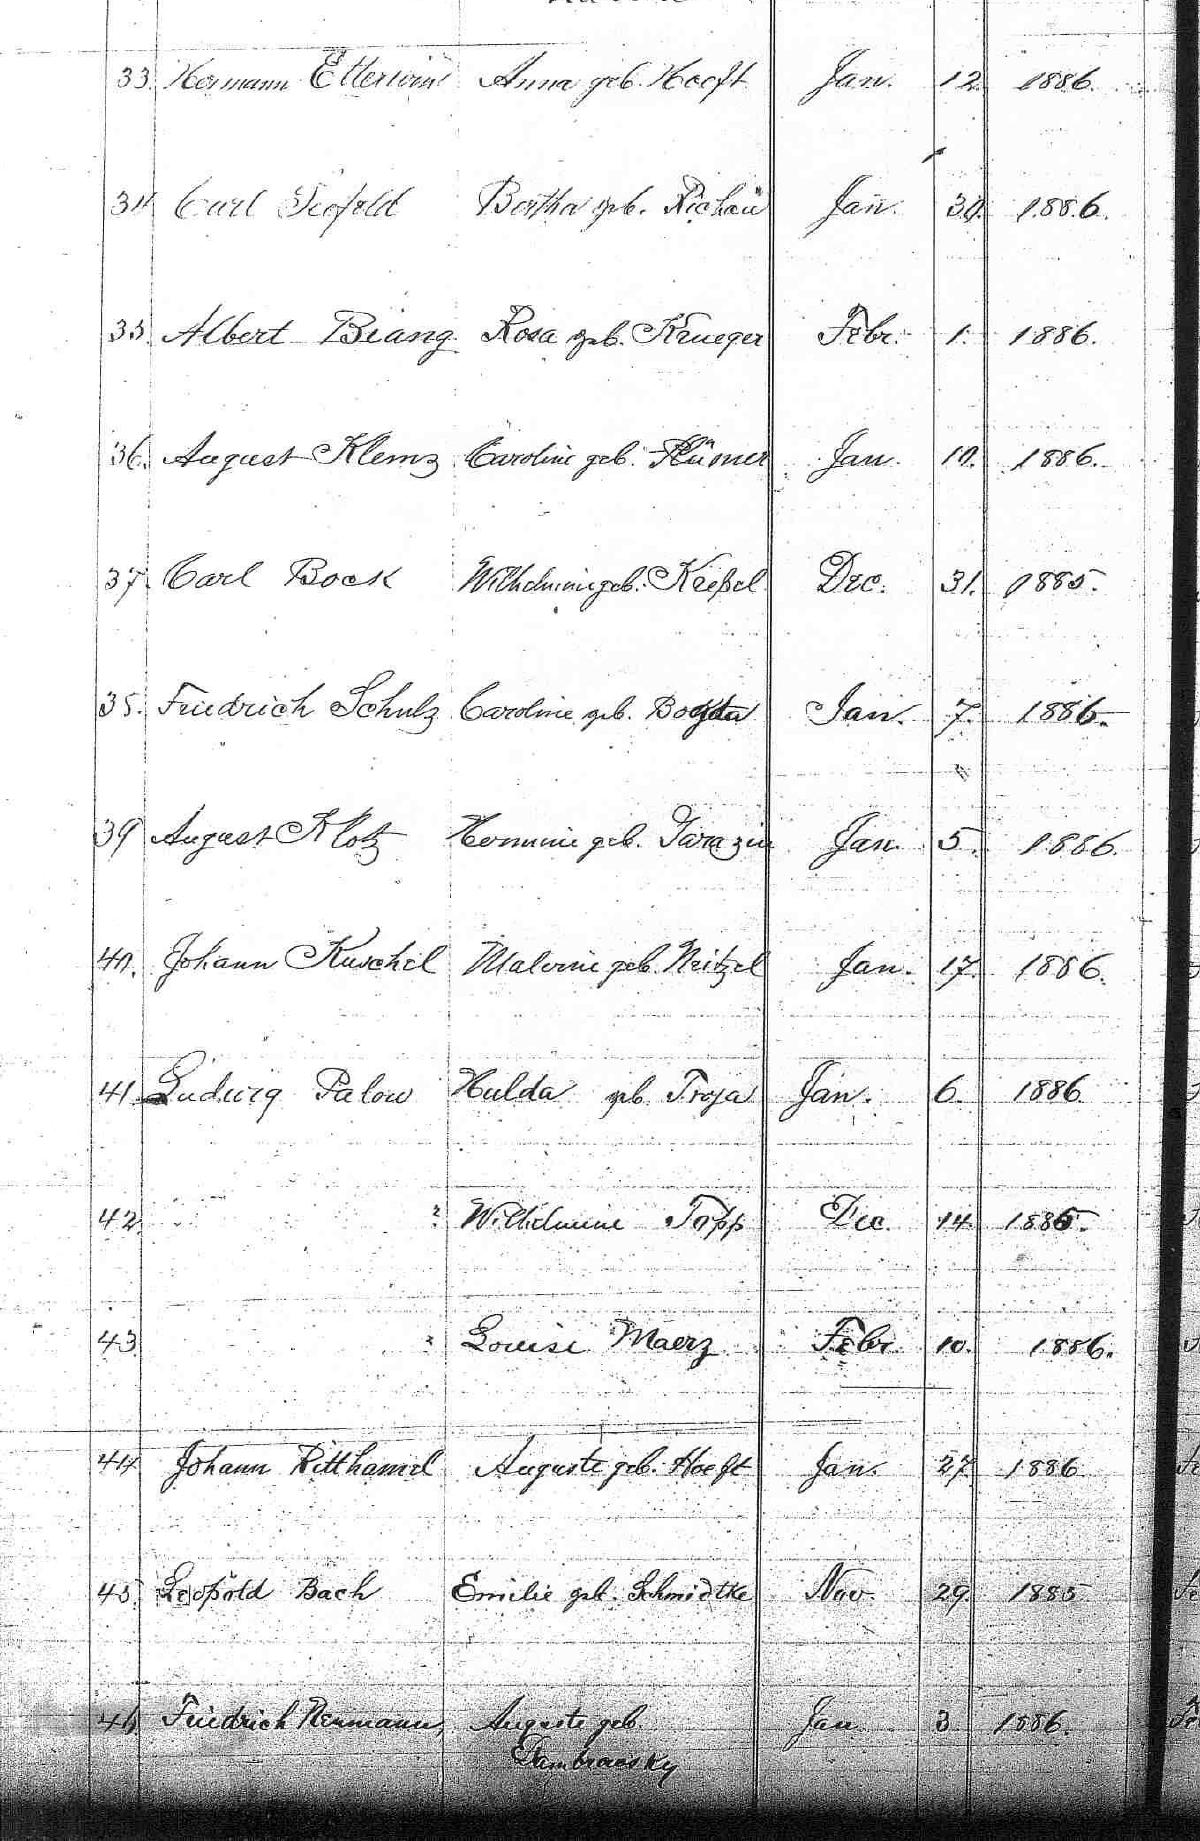 33. Hermann Anna geb. Hooft Jan. 12. 1886.
34 Carl Seefeld Bertha geb. Jan. 30. 1886.
35. Albert Biang Rosa geb. Krueger Febr. 1. 1886.
36. August Klemz Caroline geb. Plümer Jan. 10. 1886.
37. Carl Bock Wilhelmine geb. Kreßel Dec. 31. 1885.
38. Friedrich Schulz Caroline geb. Jan. 7. 1886.
39 August Klotz Hermine geb. Jan. 5. 1886.
40. Johann Kuschel Malvine geb. Neitzel Jan. 17. 1886.
41. Ludwig Palow Hulda geb. Troja Jan. 6. 1886
42. ? Wilhelmine Topp Dec. 14. 1885.
43. ? Louise Maerz Febr. 10. 1886.
44. Johann Auguste geb. Hoeft Jan. 27. 1886
45. Leopold Bach Emilie geb. Schmidtke Nov. 29. 1885
46. Friedrich Hermann, Auguste geb. Jan. 3 1886.